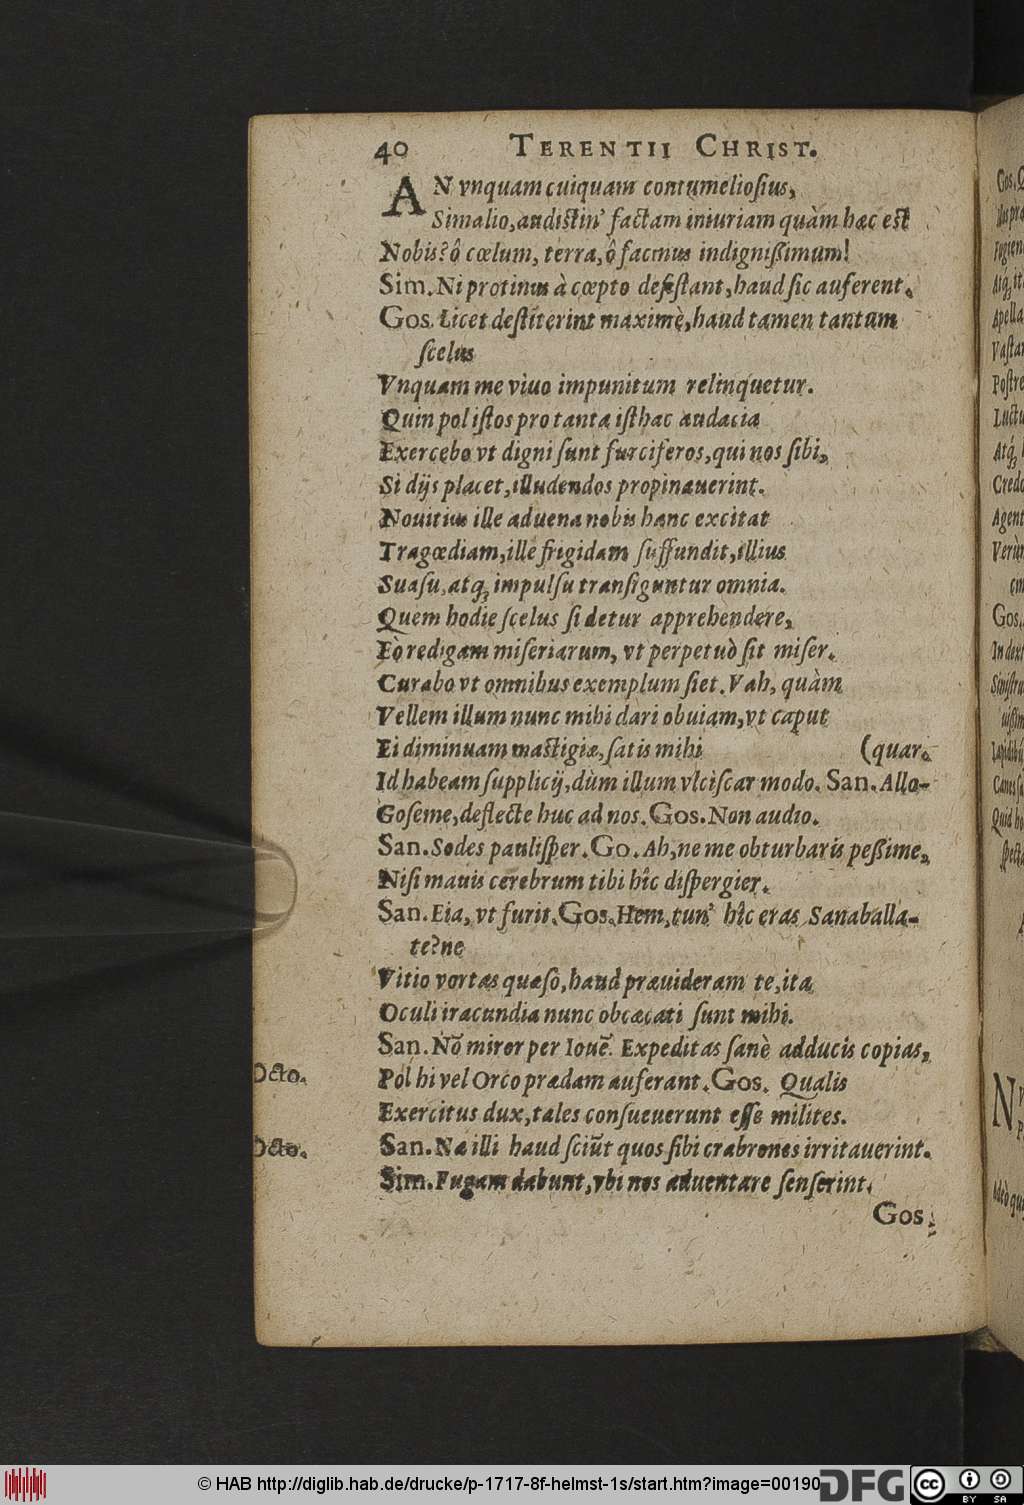 40 TERENTII CHRIST.
AN vnquam cuiquam contumeliosius,
Simalio, audistin' factam iniuriam quàm hæc est
Nobis? ô cœlum, terra, ô facinus indignißimum!
Sim. Ni protinus à cœpto desistant, haud sic auferent.
Gos. Licet destiterint maximè, haud tamen tantum
scelus
Vnquam me viuo impunitum relinquetur.
Quin pol istos pro tanta isthac audacia
Exercebo vt digni sunt furciferos, qui nos sibi,
Si dijs placet, illudendos propinauerint.
Nouitius ille aduena nobis hanc excitat
Tragœdiam, ille frigidam suffundit, illius
Suasu, atq; impulsu transiguntur omnia.
Quem hodie scelus si detur apprehendere,
Eò redigam miseriarum, vt perpetuò sit miser.
Curabo vt omnibus exemplum siet. Vah, quàm
Vellem illum nunc mihi dari obuiam, vt caput
Ei diminuam mastigiæ, satis mihi (quar.
Id habeam supplicij, dùm illum vlciscar modo. San. Allo-
Goseme, deflecte huc ad nos. Gos. Non audio.
San. Sodes paulisper. Go. Ah, ne me obturbaris peßime,
Nisi mauis cerebrum tibi hîc dispergier.
San. Eia, vt furit. Gos. Hem, tun' hîc eras Sanaballa-
te? ne
Vitio vortas quæso, haud præuideram te, ita
Oculi iracundia nunc obcæcati sunt mihi.
San. Nō miror per Iouē. Expeditas sanè adducis copias,
Octo. Pol hi vel Orco prædam auferant. Gos. Qualis
Exercitus dux, tales consueuerunt esse milites.
Octo. San. Næ illi haud sciūt quos sibi crabrones irritauerint.
Sim. Fugam dabunt, vbi nos aduentare senserint.
Gos.
© HAB http://diglib.hab.de/drucke/p-1717-8f-helmst-1s/start.htm?image=00190
DFG
cc
BY SA